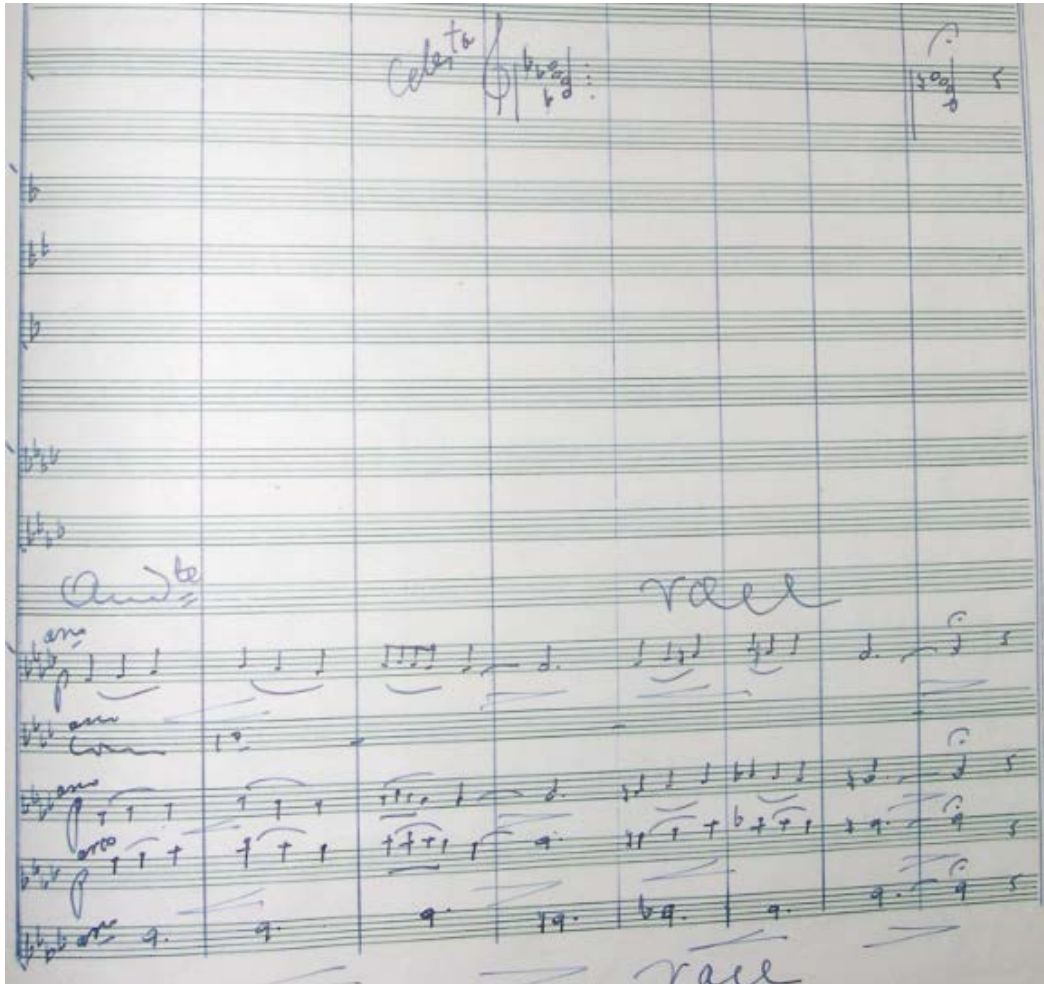 Celesta
And te
rall
arco
p
arco
Com 1º
arco
p
arco
p
arco
rall